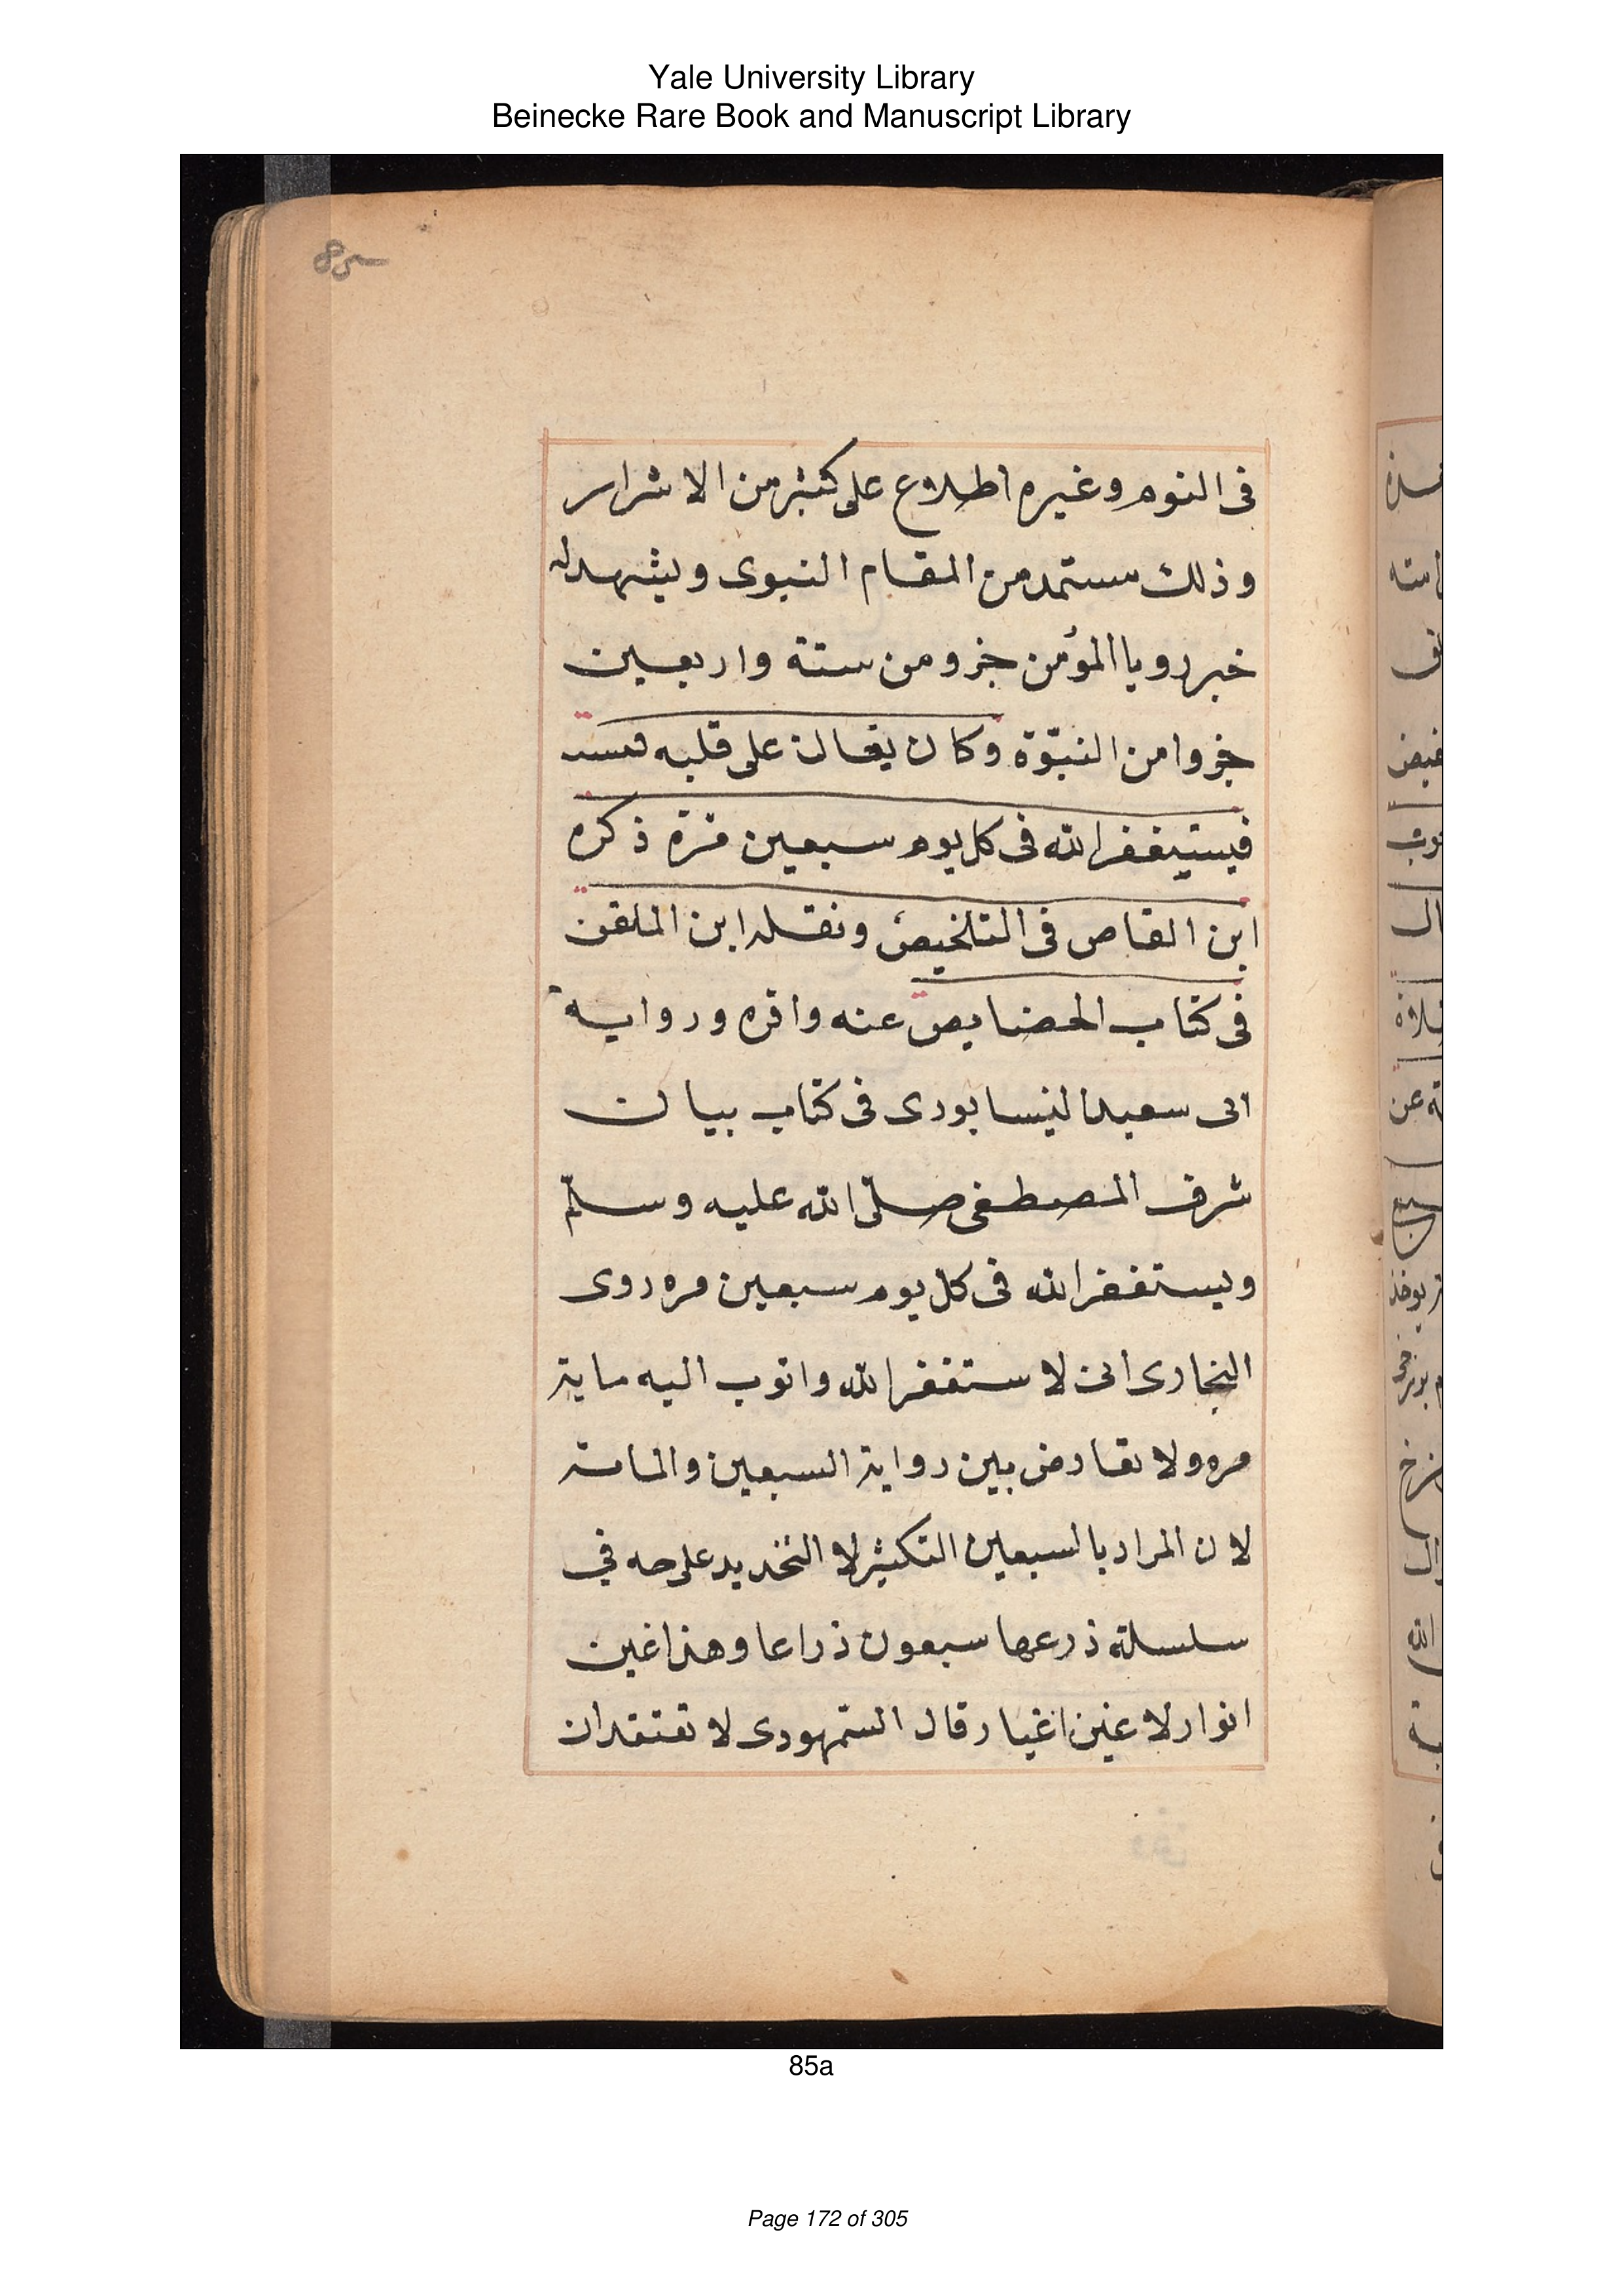 Yale University Library
Beinecke Rare Book and Manuscript Library
85
فى النوم وغيره اطلاع على كثير من الاشرار
وذلك مستمد من المقام النبوى ويشهد له
خبر رويا المؤمن جزو من ستة واربعين
جزوا من النبوّة وكان يغان على قلبه
فيستيغفر الله فى كل يوم سبعين مرة ذكره
ابن القاص فى التلخيص ونقله ابن الملقن
فى كتاب الخصايص عنه واقره ورواية
ابى سعيد النيسابورى فى كتاب بيان
شرف المصطفى صلّى الله عليه وسلّم
ويستغفر الله فى كل يوم سبعين مره روى
البخارى انى لا ستغفر الله واتوب اليه ماية
مره ولا تعارض بين رواية السبعين والماية
لان المراد بالسبعين التكثير لا التحديد على حد فى
سلسلة ذرعها سبعون ذراعا وهذا غين
انوار لا غين اغيار قال السّمهودى لا تعتقد ان
85a
Page 172 of 305